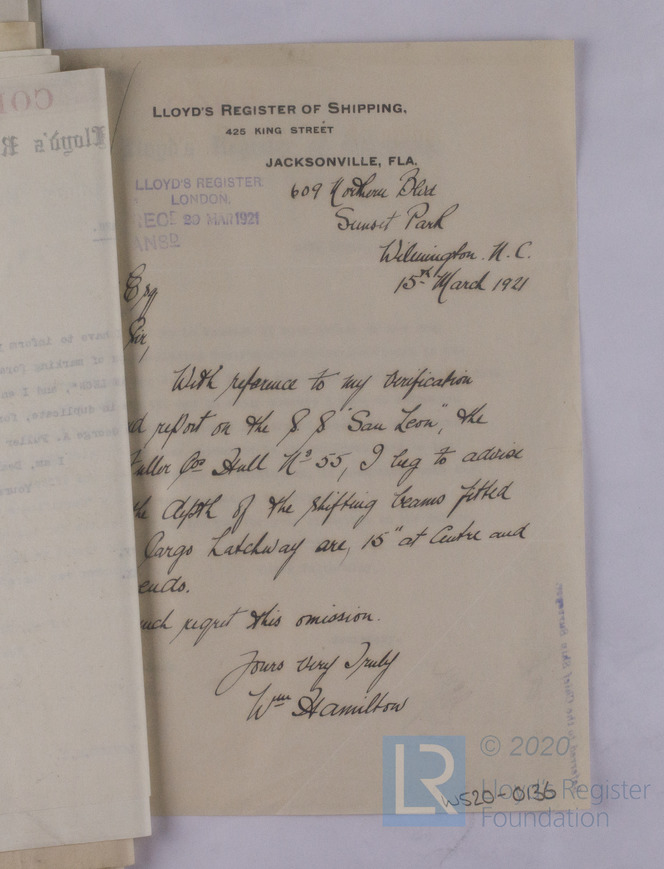 LLOYD'S REGISTER OF SHIPPING,
425 KING STREET
JACKSONVILLE, FLA.
LLOYD'S REGISTER
LONDON,
REC'D 29 MAR 1921
ANSD
609 Northern Blvd
Sunset Park
Wilmington. N.C.
15th March 1921
Esq
Sir,
With reference to my verification
report on the S S "San Leon", the
Fuller Cos Hull No 55, I beg to advise
the depth of the shifting beams fitted
Cargo hatchway are, 15" at Centre and
ends.
much regret this omission.
Yours Very Truly
Wm Hamilton
COP
Lloyd's R
have to inform
of marking form
and I en
in duplicate, for
George A. Fuller
I am, Dear
Yours
© 2020
LR
Lloyd's Register
Foundation
WS20-0136